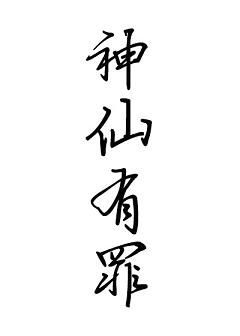 神仙有罪